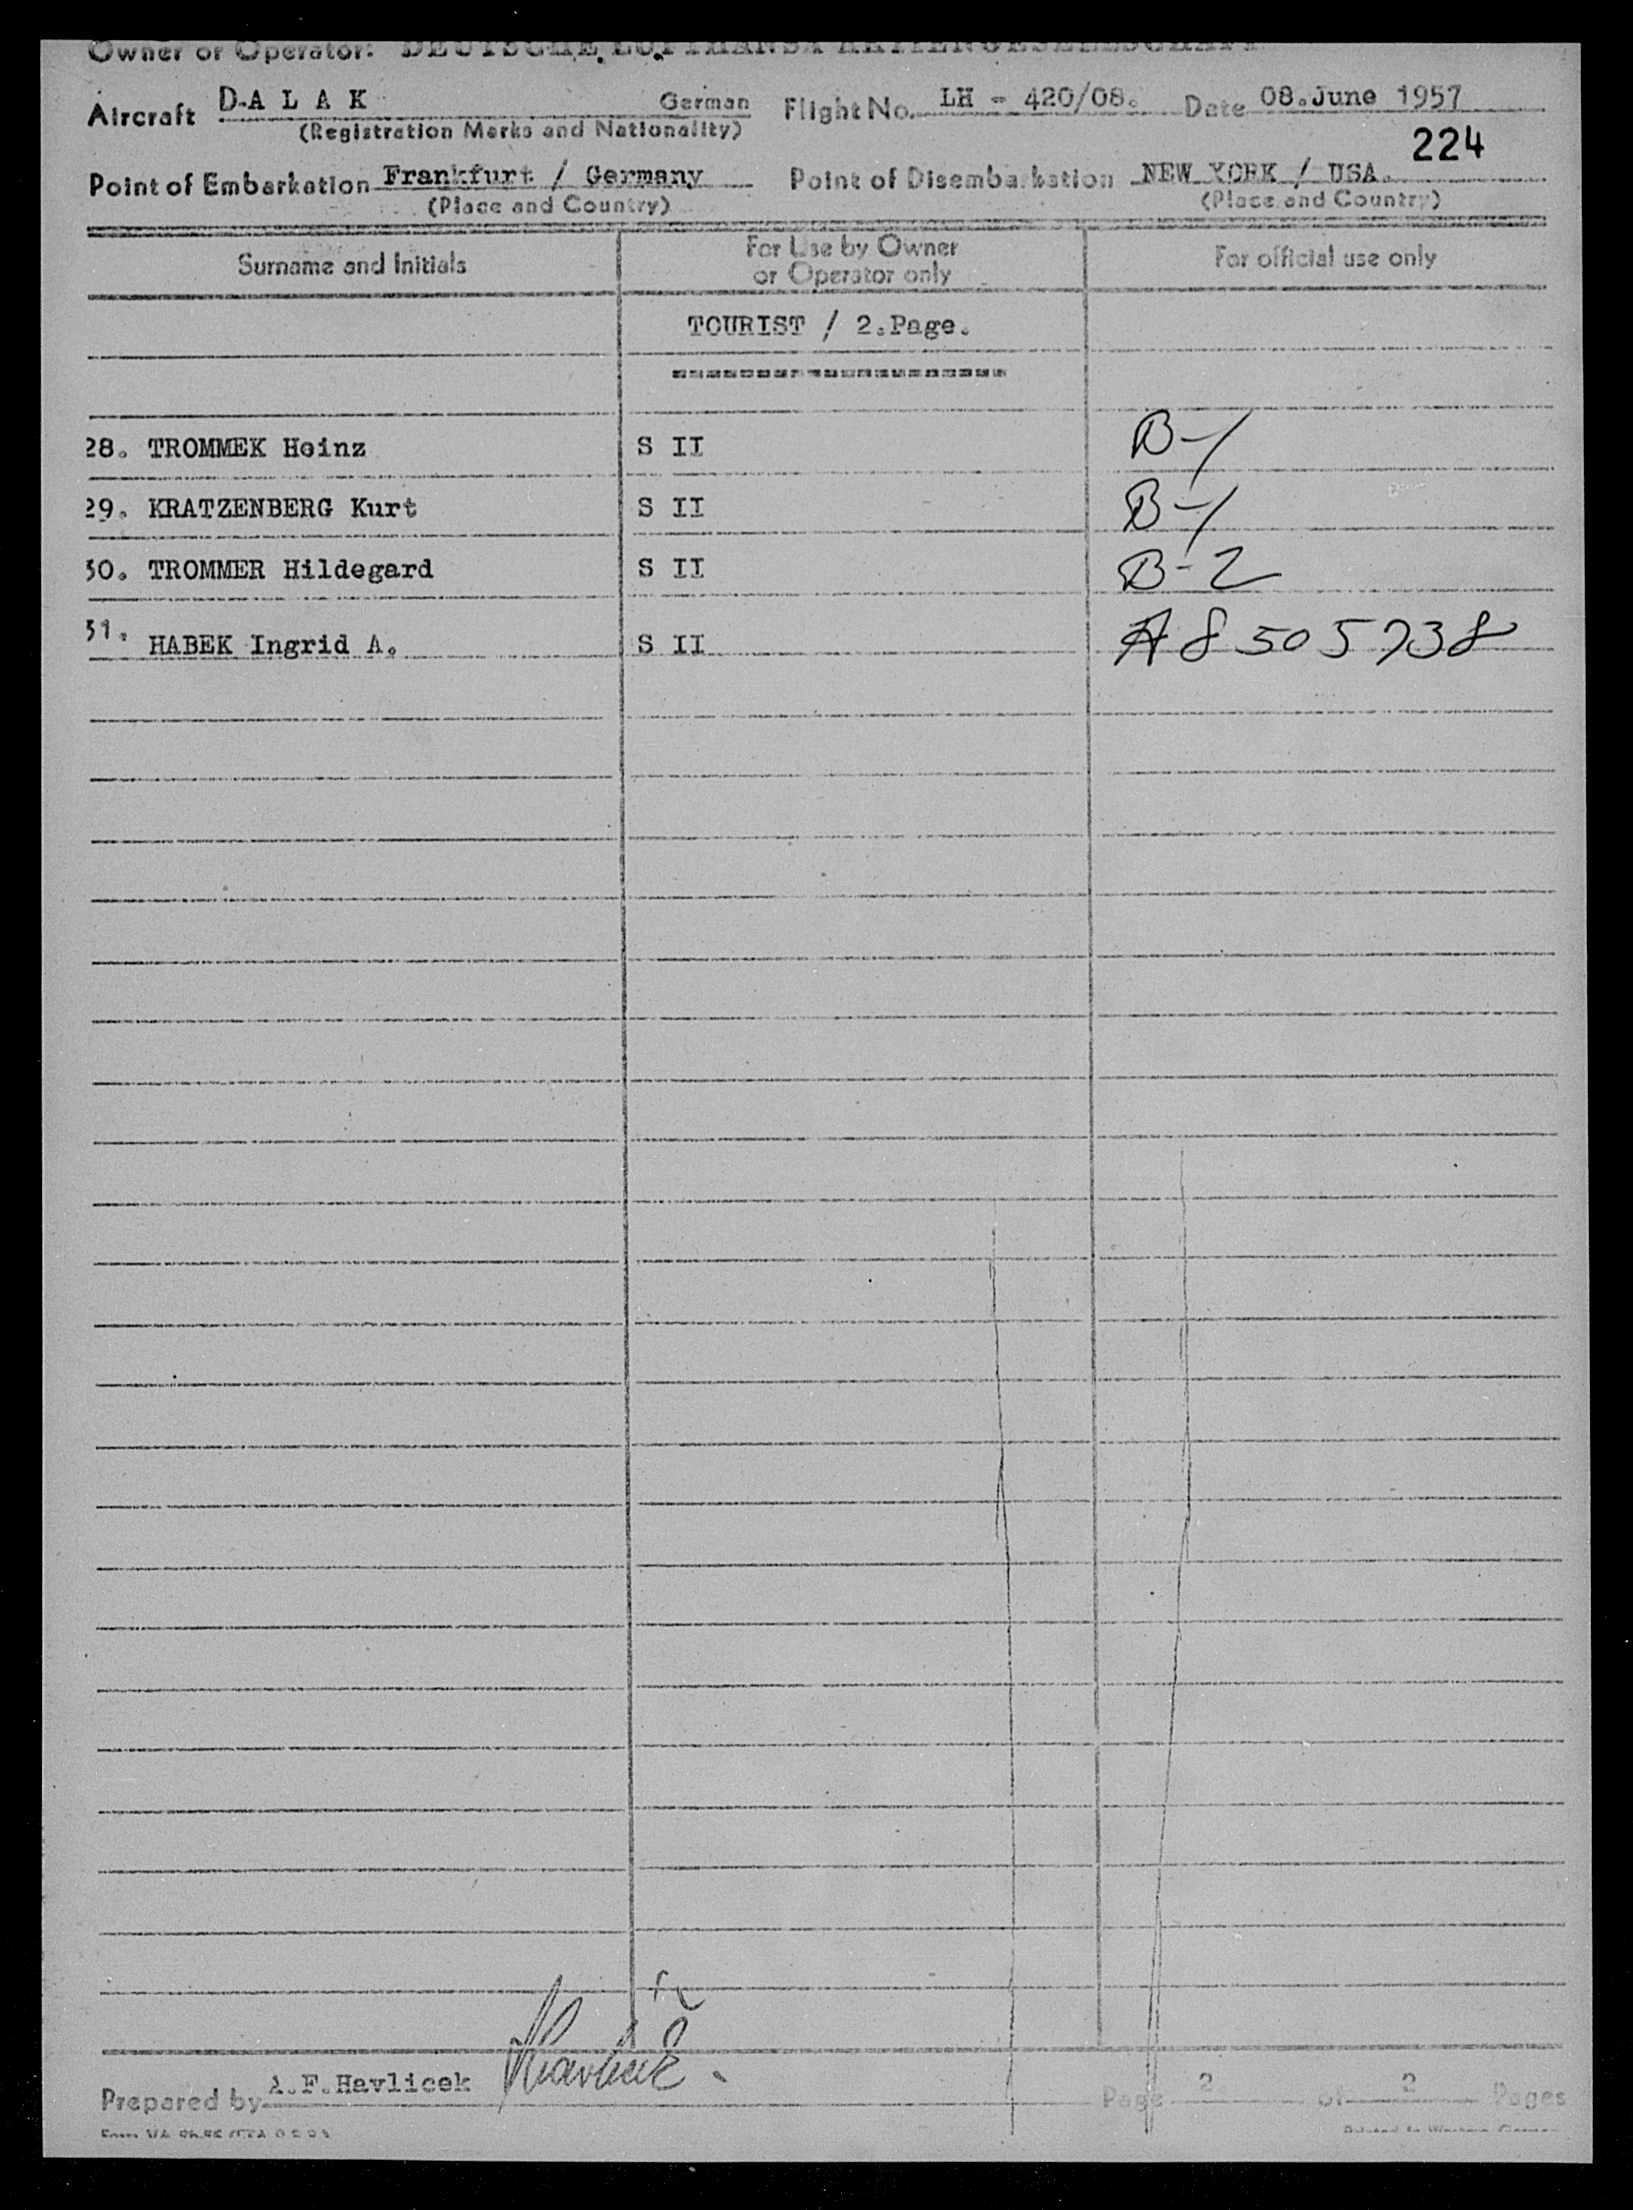 Owner or Operator: DEUTSCHE LUFTHANSA AKTIENGESELLSCHAFT
Aircraft D-A L A K German Flight No. LH - 420/08. Date 08.June 1957
(Registration Marks and Nationality)
224
Point of Embarkation Frankfurt / Germany Point of Disembarkation NEW YORK / USA.
(Place and Country) (Place and Country)
Surname and Initials For Use by Owner or Operator only For official use only
TOURIST / 2.Page.
28. TROMMEK Heinz S II B-1
29. KRATZENBERG Kurt S II B-1
30. TROMMER Hildegard S II B-2
31. HABEK Ingrid A. S II A8 505 738
Prepared by A.F.Havlicek Havlicek Page 2. of 2 Pages
Printed in Western Germany